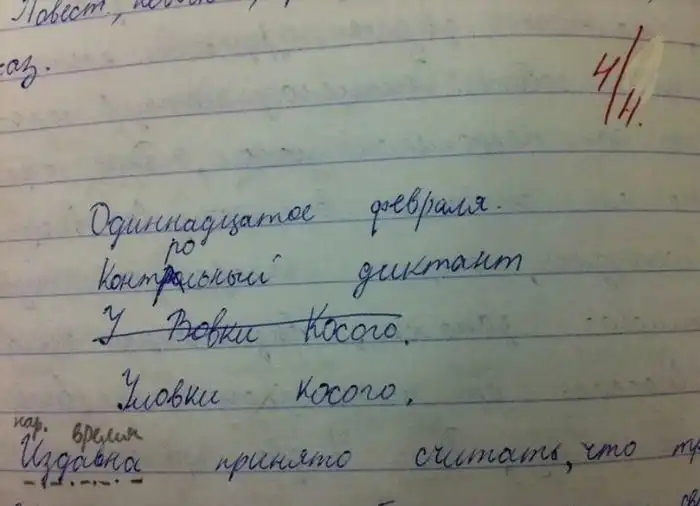 Повест.,
каз.
4/Н.
Одиннадцатое февраля.
ро
Контрольный диктант
У Вовки Косого.
Уловки косого.
нар. время
Издавна принято считать, что